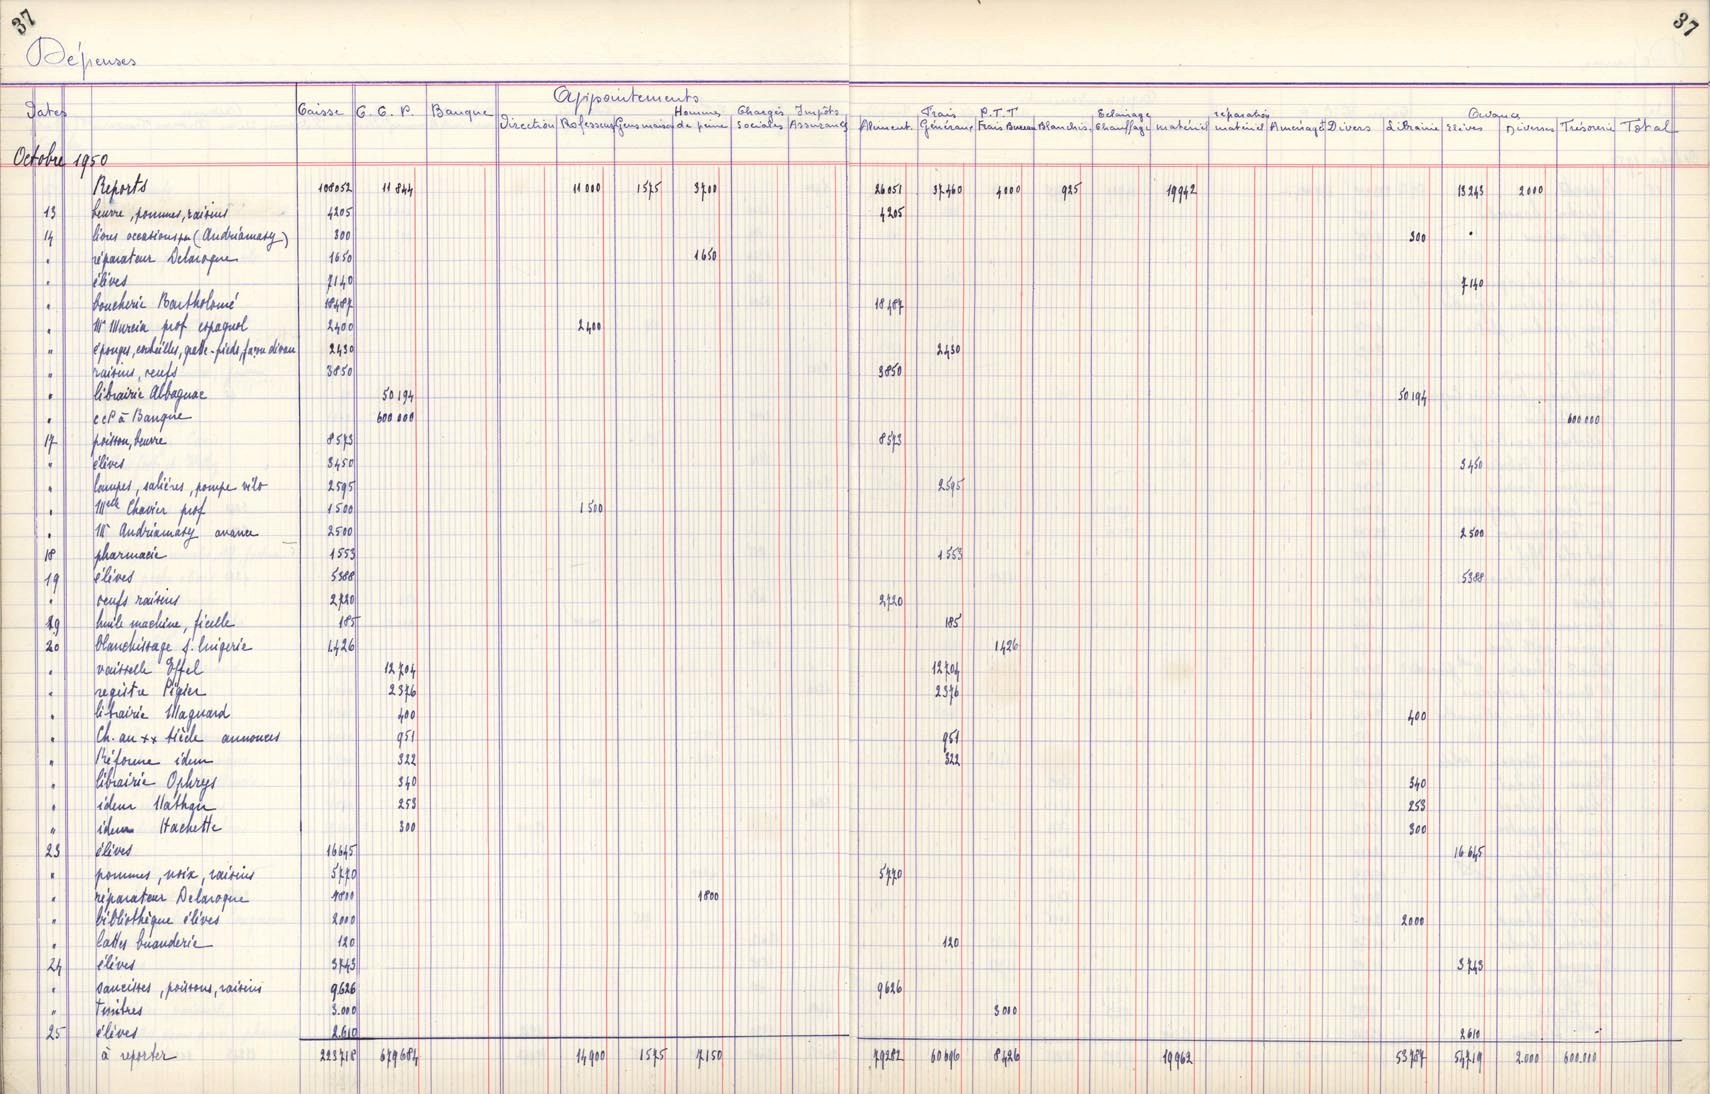 37 37
Dépenses
Appointements
Dates Caisse C. C. P. Banque Direction Professeurs Gens maison Hommes de peine Charges Sociales Impôts Assurances Aliment. Frais Généraux P.T.T Frais Bureau Blanchis. Eclairage Chauffage matériel réparation matériel Aménagt Divers Librairie Avance Elèves Diverses Trésorerie Total
Octobre 1950
Reports 108052 11844 11000 1575 3700 26051 37460 4000 925 19942 13243 2000
13 beurre, pommes, raisins 4205 4205
14 livres occasions (Andriamasy) 300 300
" réparateur Delaroque 1650 1650
" élèves 7140 7140
" boucherie Bartholomé 18487 18487
" Mr Murcia prof espagnol 2400 2400
" éponges, corbeilles, gratte-pieds, 2430 2430
" raisins, oeufs 3850 3850
" librairie Abbagnac 50194 50194
" ccP à Banque 600 000 600 000
17 poisson, beurre 8573 8573
" élèves 3450 3450
" lampes, salières, pompe vélo 2595 2595
" Melle Chavier prof 1500 1500
" Mr Andriamasy avance 2500 2500
18 pharmacie 1553 1553
19 élèves 5388 5388
" oeufs raisins 2720 2720
19 huile machine, ficelle 185 185
20 blanchissage f. lingerie 1426 1426
" vaisselle Eiffel 12704 12704
" registre Pigier 2376 2376
" librairie Magnard 400 400
" Ch. au xx siècle annonces 951 951
" Réforme idem 322 322
" librairie Ophrys 340 340
" idem Nathan 253 253
" idem Hachette 300 300
23 élèves 16645 16645
" pommes, noix, raisins 5770 5770
" réparateur Delaroque 1800 1800
" bibliothèque élèves 2000 2000
" lattes buanderie 120 120
24 élèves 3743 3743
" saucisses, poissons, raisins 9626 9626
" timbres 3.000 3000
25 élèves 2610 2610
à reporter 223718 679684 14900 1575 7150 79282 60696 8426 19962 53787 54719 2.000 600.000